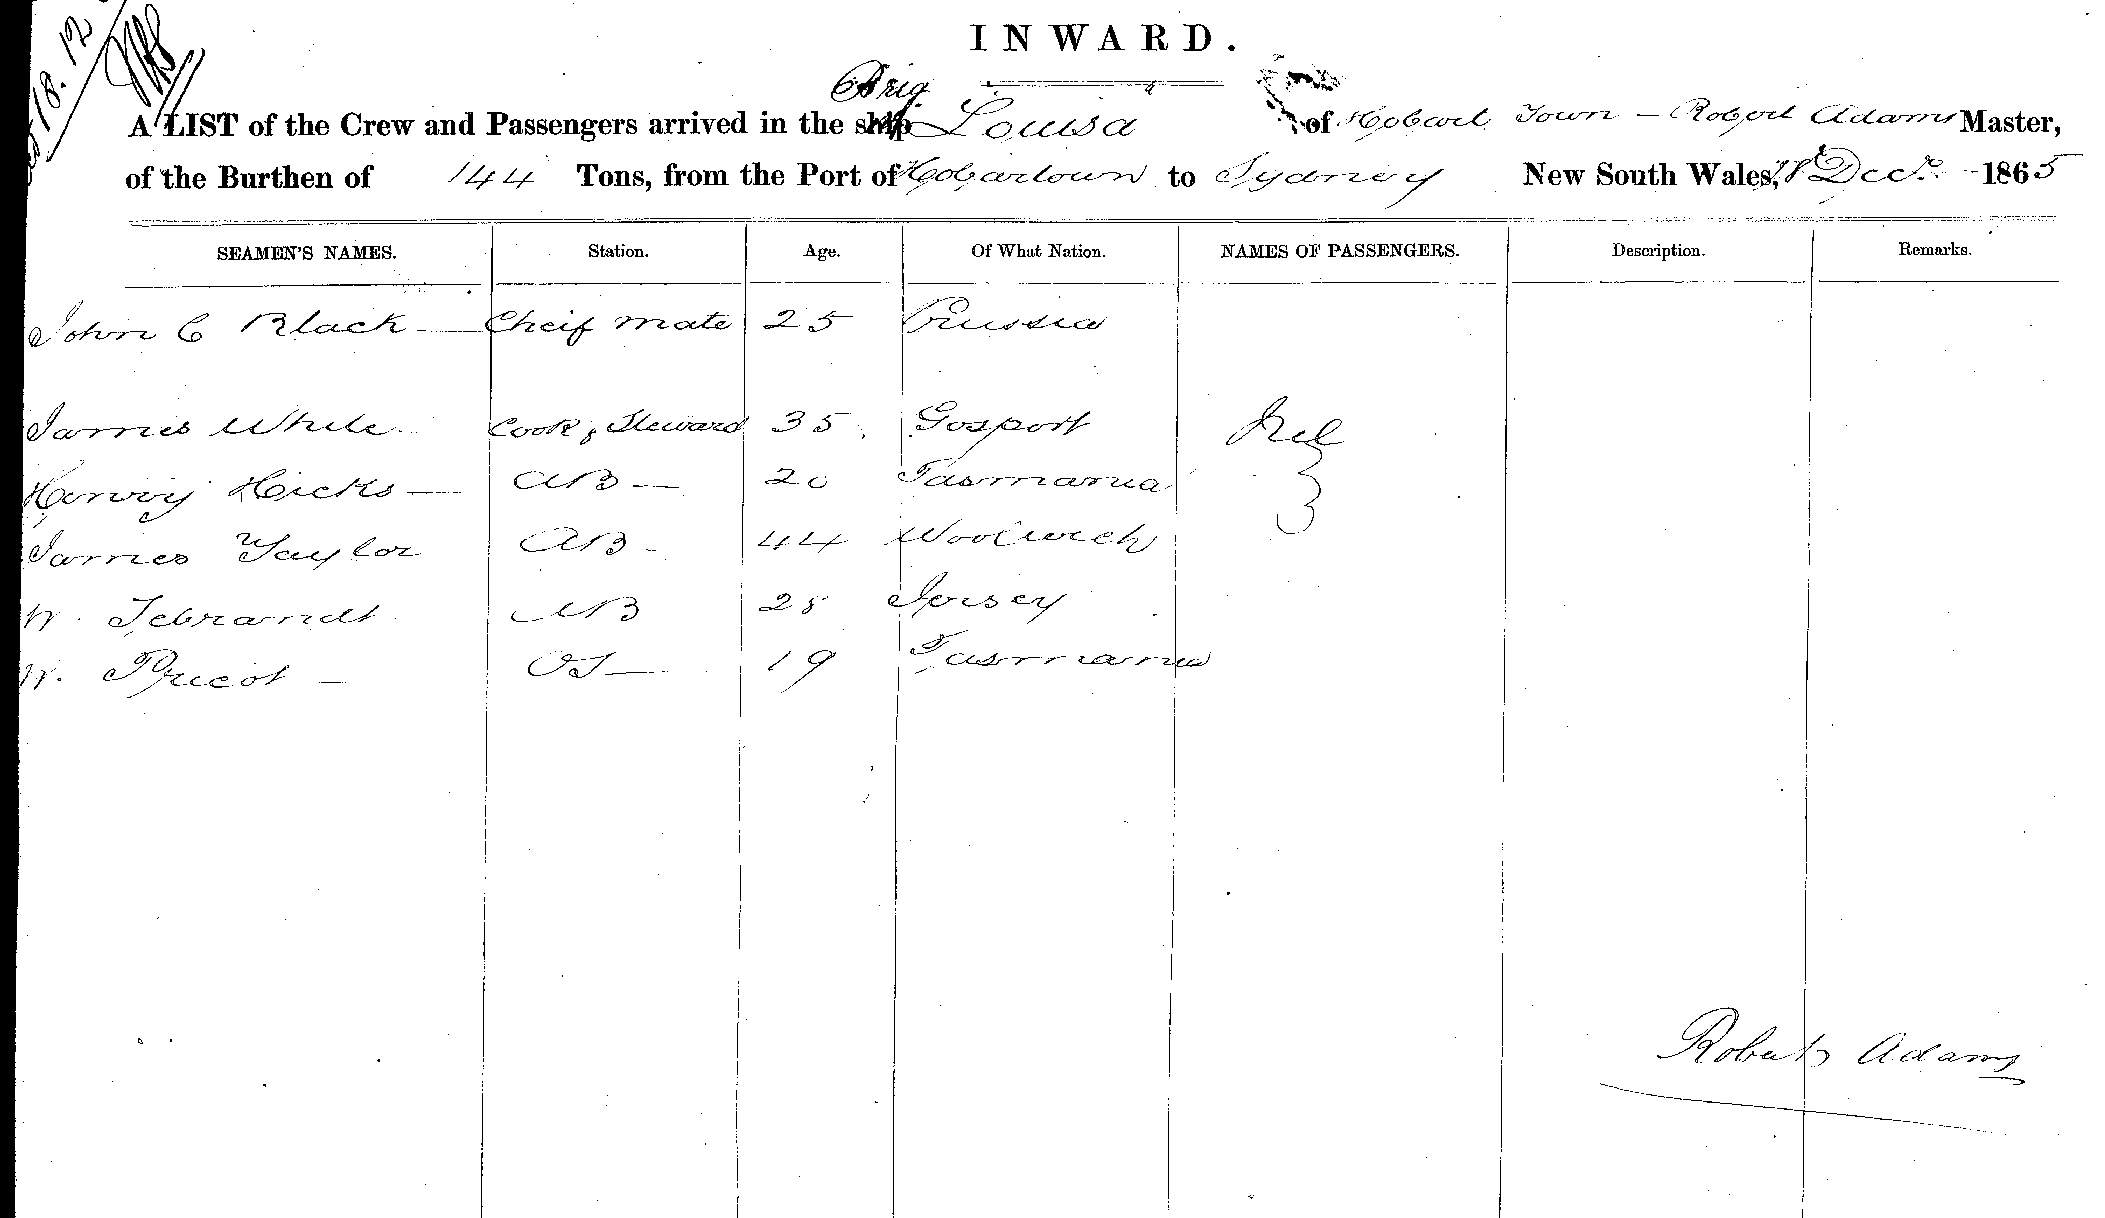 18. 12
INWARD.
Brig
A LIST of the Crew and Passengers arrived in the ship Louisa of Hobart Town - Robert Adams Master,
of the Burthen of 144 Tons, from the Port of Hobartown to Sydney New South Wales, 18 Decr. 1865
SEAMEN'S NAMES. Station. Age. Of What Nation. NAMES OF PASSENGERS. Description. Remarks.
John C Black Cheif mate 25 Prussia
James White Cook & Steward 35 Gosport Nil
Harvey Hicks AB 20 Tasmania
James Taylor AB 44 Woolwich
W. Tebrandt AB 28 Jersey
W. OS 19 Tasmania
Robert Adams